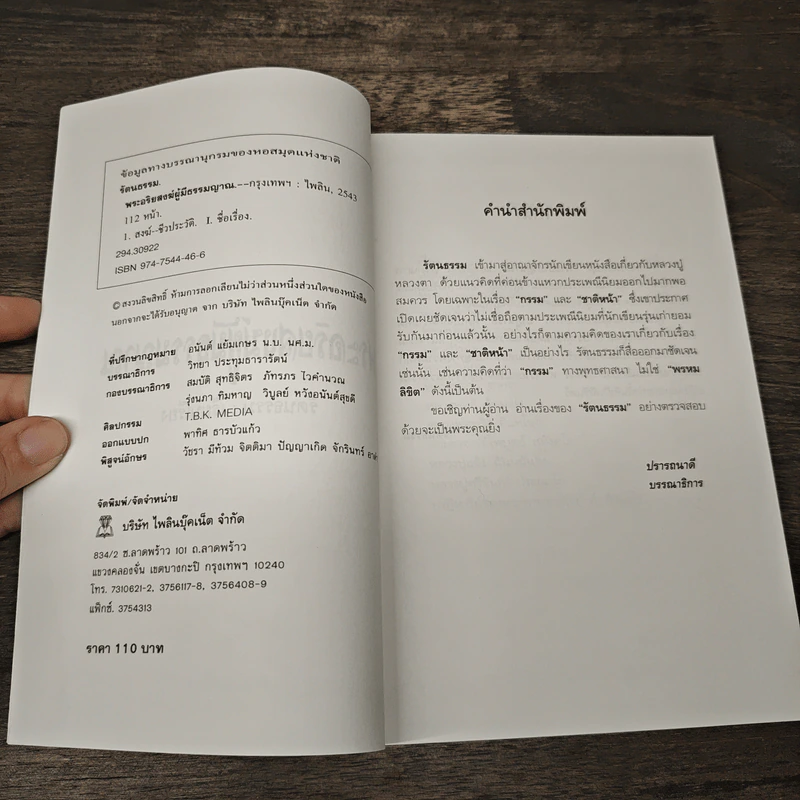 ข้อมูลทางบรรณานุกรมของหอสมุดแห่งชาติ
รัตนธรรม.
พระอริยสงฆ์ผู้มีธรรมญาณ.--กรุงเทพฯ : ไพลิน, 2543
112 หน้า.
1. สงฆ์--ชีวประวัติ. I. ชื่อเรื่อง.
294.30922
ISBN 974-7544-46-6
© สงวนลิขสิทธิ์ ห้ามการลอกเลียนไม่ว่าส่วนหนึ่งส่วนใดของหนังสือ
นอกจากจะได้รับอนุญาต จาก บริษัท ไพลินบุ๊คเน็ต จำกัด
ที่ปรึกษากฎหมาย อนันต์ แย้มเกษร น.บ. นศ.ม.
บรรณาธิการ วิทยา ประทุมธารารัตน์
กองบรรณาธิการ สมบัติ สุทธิจิตร ภัทรภร ไวคำนวณ
รุ่งนภา ทิมหาญ วิบูลย์ หวังอนันต์สุขดี
ศิลปกรรม T.B.K. MEDIA
ออกแบบปก พาทิศ ธารบัวแก้ว
พิสูจน์อักษร วัชรา มีท้วม จิตติมา ปัญญาเกิด จักรินทร์
จัดพิมพ์/จัดจำหน่าย
บริษัท ไพลินบุ๊คเน็ต จำกัด
834/2 ซ.ลาดพร้าว 101 ถ.ลาดพร้าว
แขวงคลองจั่น เขตบางกะปิ กรุงเทพฯ 10240
โทร. 7310621-2, 3756117-8, 3756408-9
แฟ็กซ์. 3754313
ราคา 110 บาท
คำนำสำนักพิมพ์
รัตนธรรม เข้ามาสู่อาณาจักรนักเขียนหนังสือเกี่ยวกับหลวงปู่
หลวงตา ด้วยแนวคิดที่ค่อนข้างแหวกประเพณีนิยมออกไปมากพอ
สมควร โดยเฉพาะในเรื่อง "กรรม" และ "ชาติหน้า" ซึ่งเขาประกาศ
เปิดเผยชัดเจนว่าไม่เชื่อถือตามประเพณีนิยมที่นักเขียนรุ่นเก่ายอม
รับกันมาก่อนแล้วนั้น อย่างไรก็ตามความคิดของเราเกี่ยวกับเรื่อง
"กรรม" และ "ชาติหน้า" เป็นอย่างไร รัตนธรรมก็สื่อออกมาชัดเจน
เช่นนั้น เช่นความคิดที่ว่า "กรรม" ทางพุทธศาสนา ไม่ใช่ "พรหม
ลิขิต" ดังนี้เป็นต้น
ขอเชิญท่านผู้อ่าน อ่านเรื่องของ "รัตนธรรม" อย่างตรวจสอบ
ด้วยจะเป็นพระคุณยิ่ง
ปรารถนาดี
บรรณาธิการ